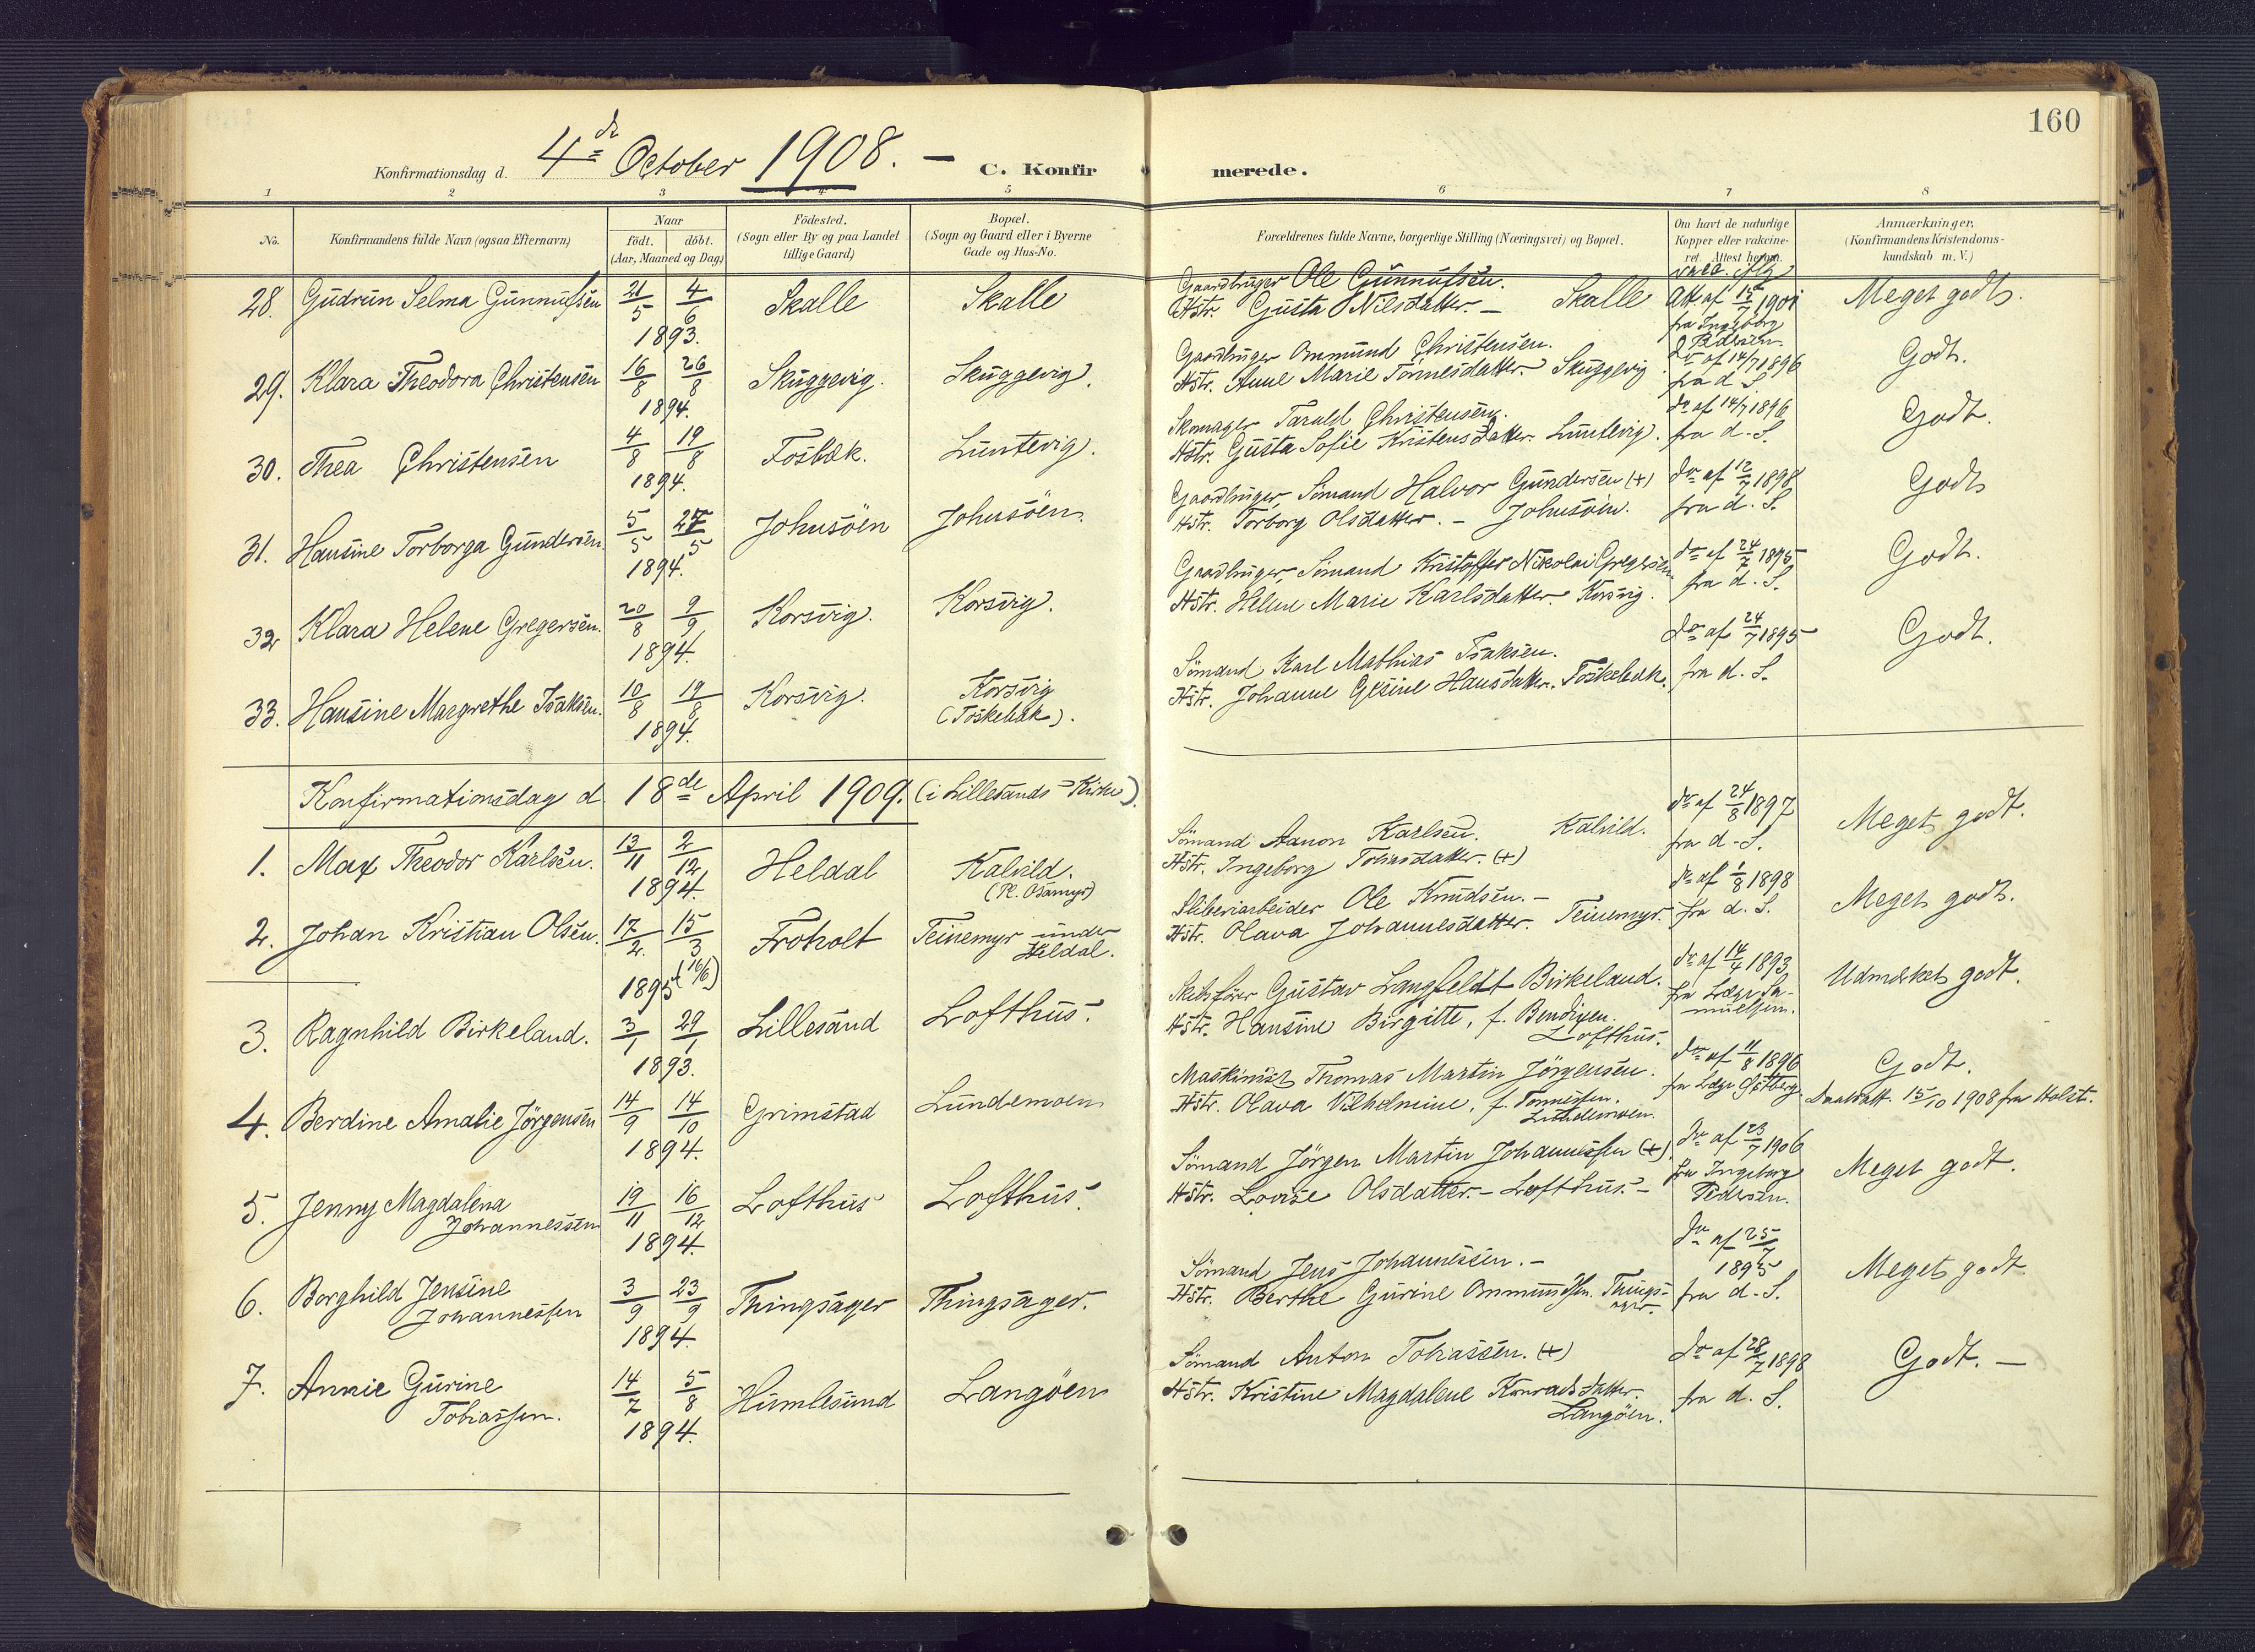 160
Konfirmationsdag d. 4de October 1908. — C. Konfirmerede.
1 2 3 4 5 6 7 8
No. Konfirmandens fulde Navn (ogsaa Efternavn) Naar födt. döbt. (Aar, Maaned og Dag) Födested. (Sogn eller By og paa Landet tillige Gaard) Bopæl. (Sogn og Gaard eller i Byerne Gade og Hus-No. Forældrenes fulde Navne, borgerlige Stilling (Næringsvei) og Bopæl. Om havt de naturlige Kopper eller vakcineret. Attest herom. Anmærkninger. (Konfirmandens Kristendomskundskab m. V.)
28. Gudrun Selma Gunnufsen 21/5 4/6 1893. Skalle Skalle
Gaardbruger Ole Gunnufsen.
Hstr. Gusta Nilsdatter. — Skalle
Att. af 15/7 1901 fra Ingeborg Pedersen
Meget godt.
29. Klara Theodora Christensen 16/8 26/8 1894. Skuggevig. Skuggevig.
Gaardbruger Ommund Christensen.
Hstr. Anne Marie Tönnesdatter. Skuggevig.
do af 14/7 1896 fra d. S.
Godt.
30. Thea Christensen 4/8 19/8 1894. Fosbæk. Luntevig.
Skomager Tarald Christensen.
Hstr. Gusta Sofie Kristensdatter. Luntevig.
do af 14/7 1896 fra d. S.
Godt.
31. Hansine Torborga Gundersen. 5/5 27/5 1894. Johnsöen Johnsöen.
Gaardbruger, Sömand Halvor Gundersen (+)
Hstr. Torborg Olsdatter. — Johnsöen.
do af 12/7 1898 fra d. S.
Godt
32 Klara Helene Gregersen. 20/8 9/9 1894. Korsvig. Korsvig.
Gaardbruger, Sömand Kristoffer Nikolai Gregersen
Hstr. Helene Marie Karlsdatter. Korsvig.
do af 24/7 1895 fra d. S.
Godt.
33. Hansine Margrethe Isaksen. 10/8 19/8 1894. Korsvig. Korsvig (Toskebæk).
Sömand Karl Mathias Isaksen.
Hstr. Johanne Gesine Hansdatter. Toskebæk.
do af 24/7 1895 fra d. S.
Godt.
Konfirmationsdag d 18de April 1909. (i Lillesands Kirke).
1. Max Theodor Karlsen. 13/11 2/12 1894. Heldal Kalvild. (Pl. Osamyr)
Sömand Aanon Karlsen. Kalvild.
Hstr. Ingeborg Tobiasdatter. (+)
do af 24/8 1897 fra d. S.
Meget godt.
2. Johan Kristian Olsen. 17/2. 15/3 1895 (16/6) Froholt Teinemyr under Heldal.
Sliberiarbeider Ole Knudsen. —
Hstr. Olava Johannesdatter. Teinemyr.
do af 1/8 1898 fra d. S.
Meget godt.
3. Ragnhild Birkeland. 3/1 29/1 1893. Lillesand Lofthus.
Skibsförer Gustav Langfeldt Birkeland.
Hstr. Hansine Birgitte, f. Bendixen. Lofthus.
do af 14/4 1893 fra Læge Samuelsen.
Udmærket godt.
4. Berdine Amalie Jörgensen 14/9 14/10 1894. Grimstad Lundemoen
Maskinist Thomas Martin Jörgensen.
Hstr. Olava Vilhelmine, f. Tönnesen. Lundemoen.
do af 11/8 1896 fra Læge
Godt.
15/10 1908 fra Holst.
5. Jenny Magdalena Johannessen 19/11 16/12 1894. Lofthus Lofthus.
Sömand Jörgen Martin Johannessen (+).
Hstr. Lovise Olsdatter. — Lofthus. —
do af 23/7 1906 fra Ingeborg Pedersen.
Meget godt.
6. Borghild Jensine Johannessen 3/9 23/9 1894. Thingsager Thingsager.
Sömand Jens Johannessen. —
Hstr. Berthe Gurine Ommundsen. Thingsager.
do af 25/7 1895 fra d. S.
Meget godt
7. Annie Gurine Tobiassen. 14/7 5/8 1894. Humlesund Langöen
Sömand Anton Tobiassen. (+)
Hstr. Kristine Magdalene Konradsdatter. Langöen.
do af 28/7 1898 fra d. S.
Godt. —